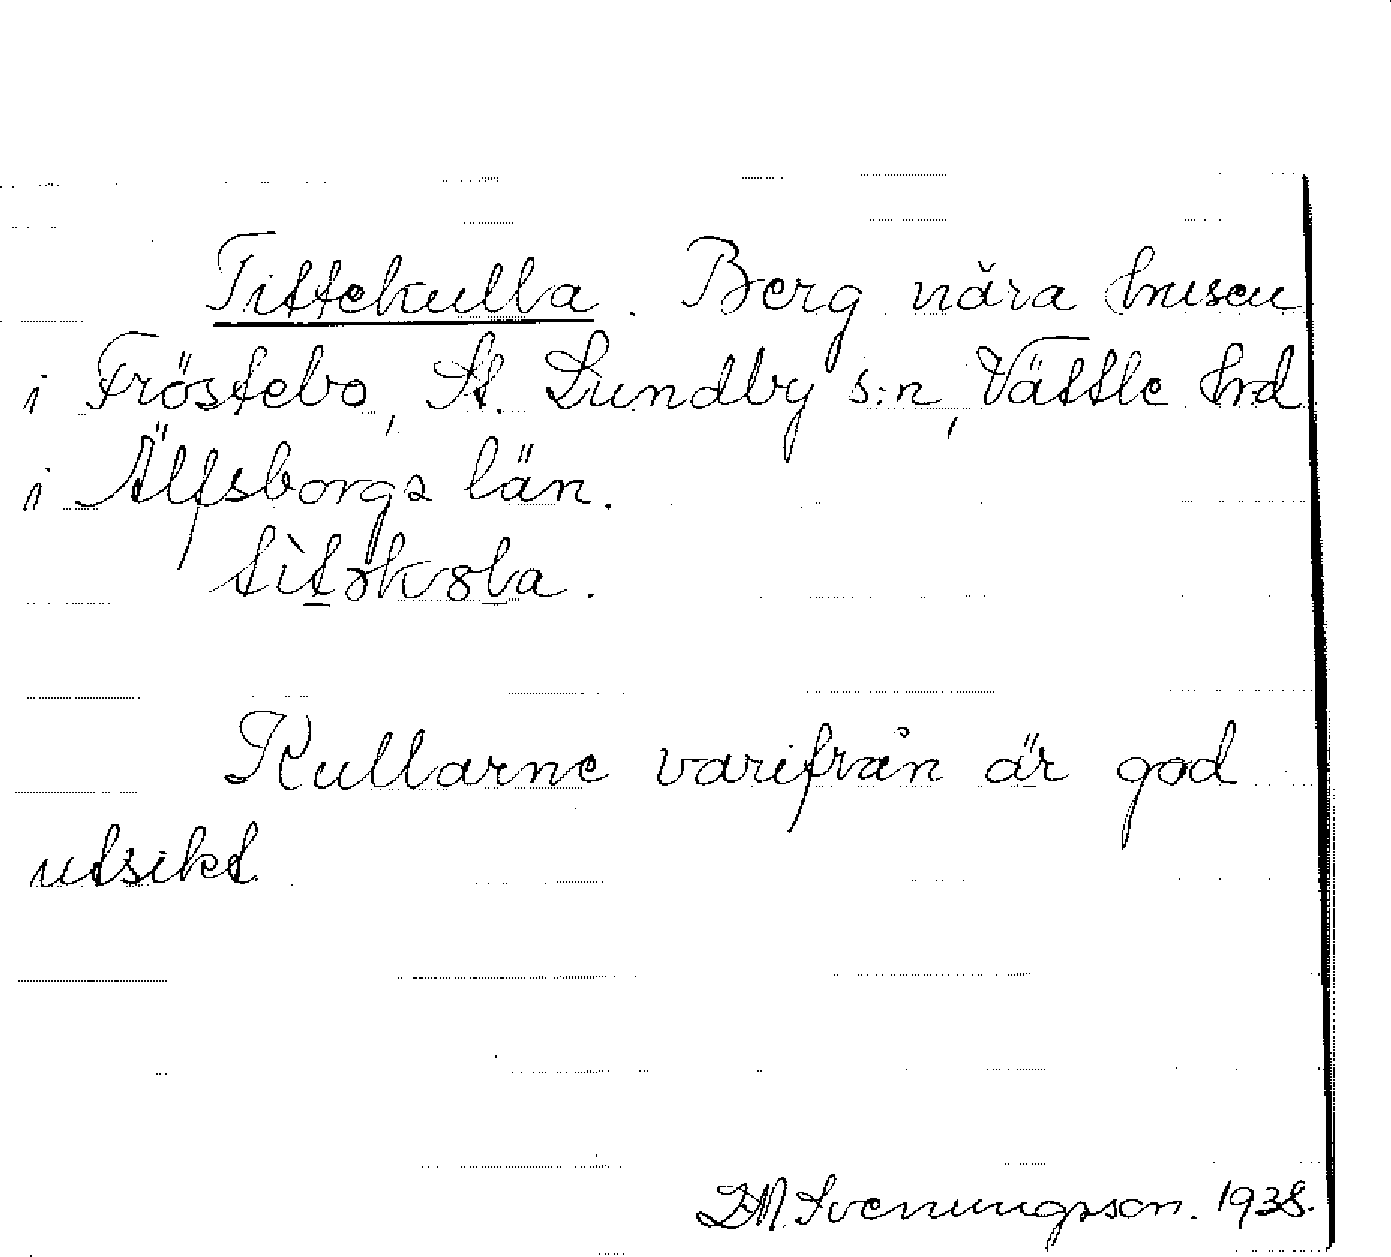 Tittekulla. Berg nära husen
i Fröstebo, St. Lundby s:n, Vättle hrd
i Älfsborgs län.
tìt̲əkɷl̲a.
Kullarne varifrån är god
utsikt
D.M. Svenungsson. 1938.